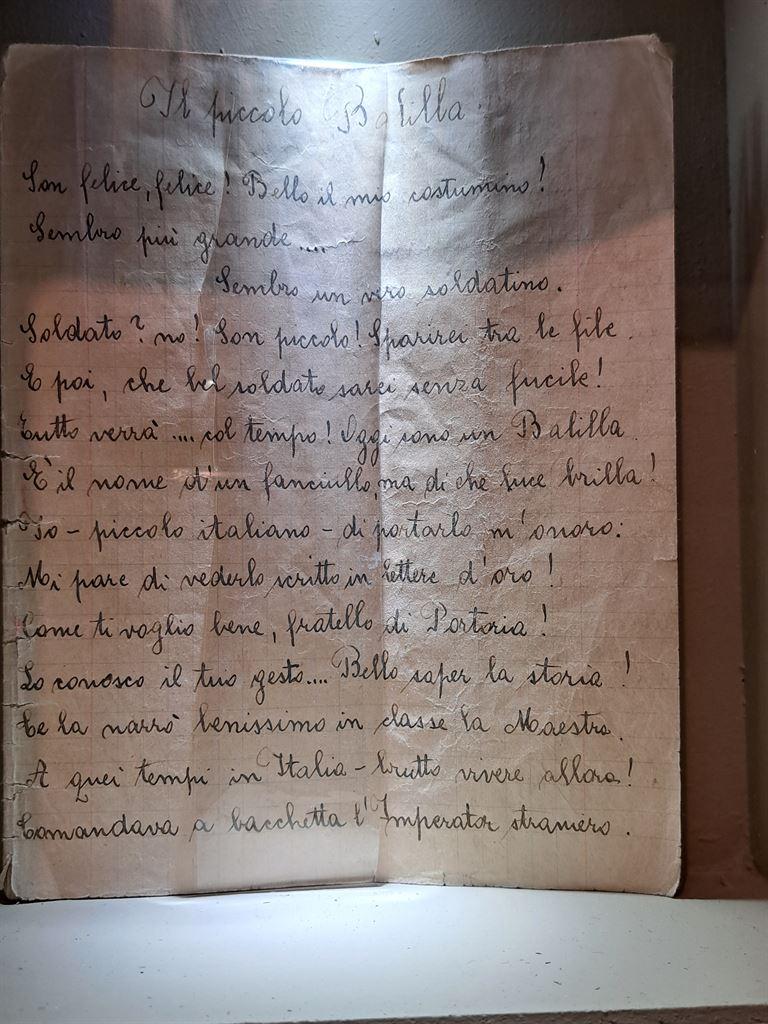 Il piccolo Balilla.
Son felice, felice! Bello il mio costumino!
Sembro più grande....
Sembro un vero soldatino.
Soldato? no! Son piccolo! Sparirei tra le file.
E poi, che bel soldato sarei senza fucile!
Tutto verrà .... col tempo! Oggi sono un Balilla
E' il nome d'un fanciullo, ma di che luce brilla!
Io - piccolo italiano - di portarlo m'onoro:
Mi pare di vederlo scritto in lettere d'oro!
Come ti voglio bene, fratello di Portoria!
Lo conosco il tuo gesto.... Bello saper la storia!
Ce la narrò benissimo in classe la Maestra.
A quei tempi in Italia - brutto vivere allora!
Comandava a bacchetta l'Imperator straniero.